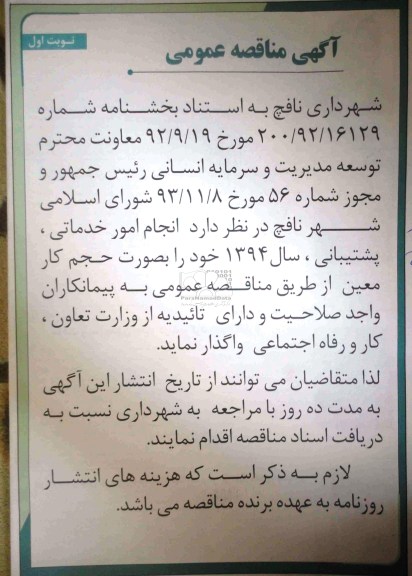 نوبت اول
آگهی مناقصه عمومی
شهرداری نافچ به استناد بخشنامه شماره
۲۰۰/۹۲/۱۶۱۲۹ مورخ ۹۲/۹/۱۹ معاونت محترم
توسعه مدیریت و سرمایه انسانی رئیس جمهور و
مجوز شماره ۵۶ مورخ ۹۳/۱۱/۸ شورای اسلامی
شهر نافچ در نظر دارد انجام امور خدماتی ،
پشتیبانی ، سال ۱۳۹۴ خود را بصورت حجم کار
معین از طریق مناقصه عمومی به پیمانکاران
واجد صلاحیت و دارای تائیدیه از وزارت تعاون ،
کار و رفاه اجتماعی واگذار نماید.
لذا متقاضیان می توانند از تاریخ انتشار این آگهی
به مدت ده روز با مراجعه به شهرداری نسبت به
دریافت اسناد مناقصه اقدام نمایند.
لازم به ذکر است که هزینه های انتشار
روزنامه به عهده برنده مناقصه می باشد.
ParsNamadData